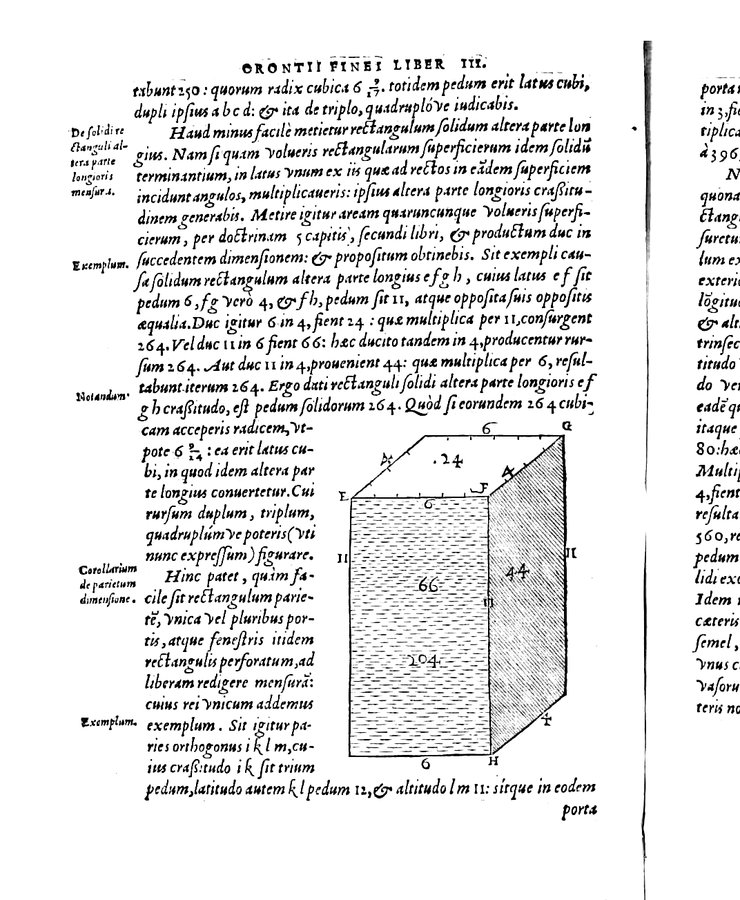 ORONTII FINEI LIBER III.
tabunt 250: quorum radix cubica 6 9/13. totidem pedum erit latus cubi,
dupli ipsius a b c d: & ita de triplo, quadruplóve iudicabis.
De solidi re
ctanguli al-
tera parte
longioris
mensura.
Haud minus facilè metietur rectangulum solidum altera parte lon
gius. Nam si quam volueris rectangularum superficierum idem solidũ
terminantium, in latus vnum ex iis quæ ad rectos in eãdem superficiem
incidunt angulos, multiplicaueris: ipsius altera parte longioris craßitu-
dinem generabis. Metire igitur aream quaruncunque volueris superfi-
cierum, per doctrinam 5 capitis, secundi libri, & productum duc in
Exemplum.
succedentem dimensionem: & propositum obtinebis. Sit exempli cau-
sa solidum rectangulum altera parte longius e f g h, cuius latus e f sit
pedum 6, f g verò 4, & f h, pedum sit 11, atque opposita suis oppositis
æqualia. Duc igitur 6 in 4, fient 24: quæ multiplica per 11, consurgent
264. Vel duc 11 in 6 fient 66: hæc ducito tandem in 4, producentur rur-
sum 264. Aut duc 11 in 4, prouenient 44: quæ multiplica per 6, resul-
Notandum.
tabunt iterum 264. Ergo dati rectanguli solidi altera parte longioris e f
g h craßitudo, est pedum solidorum 264. Quòd si eorundem 264 cubi-
cam acceperis radicem, vt-
pote 6 9/24: ea erit latus cu-
bi, in quod idem altera par
te longius conuertetur. Cui
rursum duplum, triplum,
quadruplumve poteris (vti
nunc expressum) figurare.
Corollarium
de parietum
dimensione.
Hinc patet, quàm fa-
cile sit rectangulum parie-
tẽ, vnica vel pluribus por-
tis, atque fenestris itidem
rectangulis perforatum, ad
liberam redigere mensurã:
cuius rei vnicum addemus
Exemplum.
exemplum. Sit igitur pa-
ries orthogonus i k l m, cu-
ius craß:tudo i k sit trium
6
G
4
.24
4
E
F
6
11
11
66
44
11
204
4
6
H
pedum, latitudo autem k l pedum 12, & altitudo l m 11: sitque in eodem
porta
porta
in 3, fi
tiplica
à 396
N
quona
ctang
suretu
lum ex
exterio
lõgitu
& alt
trinsec
titudo
do ve
eadẽ q
itaque
80: hæ
Multip
4, fient
resulta
560, re
pedum
lidi exc
Idem
cæteris
semel,
vnus c
vasoru
teris no